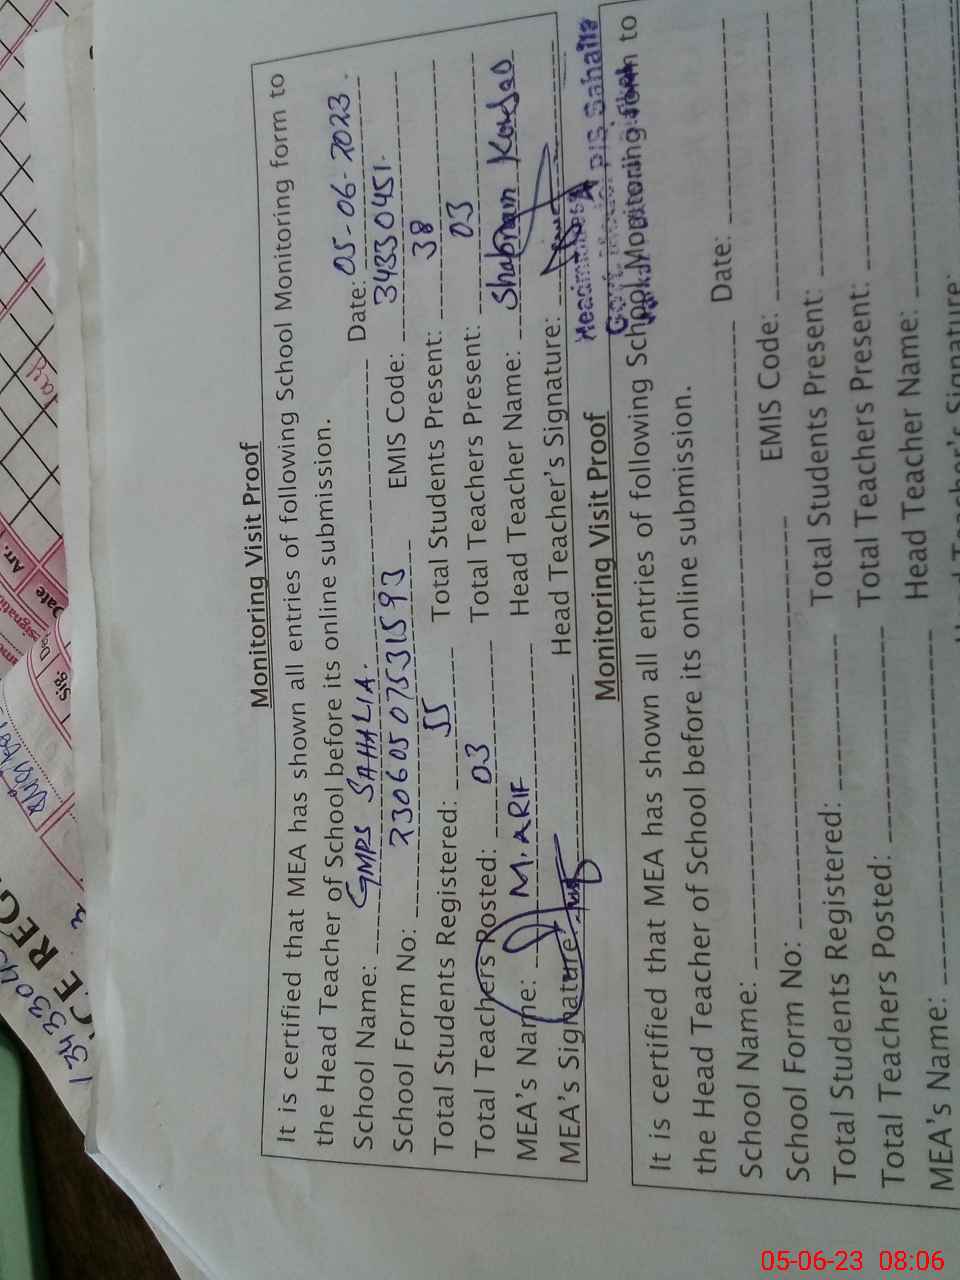 Monitoring Visit Proof
It is certified that MEA has shown all entries of following School Monitoring form to
the Head Teacher of School before its online submission.
School Name: GMPS SAHALIA. Date: 05-06-2023.
School Form No: 23060507531593 EMIS Code: 34330451.
Total Students Registered: 55 Total Students Present: 38
Total Teachers Posted: 03 Total Teachers Present: 03
MEA's Name: M. ARIF Head Teacher Name: Shabnam Kousar
MEA's Signature: Head Teacher's Signature:
Headmistress
Govt. P/S Sahalia
Monitoring Visit Proof
It is certified that MEA has shown all entries of following School Monitoring form to
the Head Teacher of School before its online submission.
School Name: Date:
School Form No: EMIS Code:
Total Students Registered: Total Students Present:
Total Teachers Posted: Total Teachers Present:
MEA's Name: Head Teacher Name:
Head Teacher's Signature:
CE REG
Date
Art.
Sig.
05-06-23 08:06